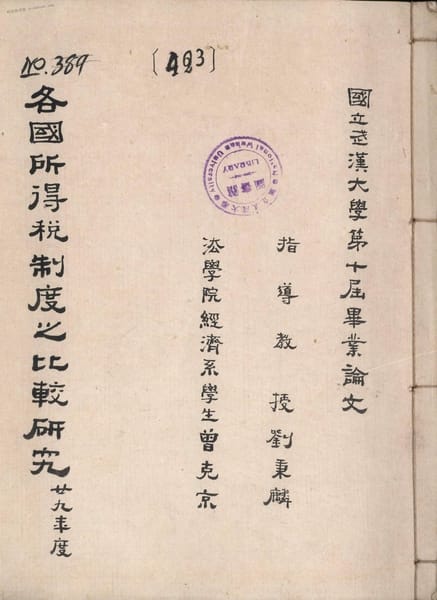 國立武漢大學第十屆畢業論文
指導教授劉秉麟
法學院經濟系學生曾克京
各國所得稅制度之比較研究
廿九年度
NO.389
[423]
National Wuhan University
LIBRARY
圖書館
國立武漢大學